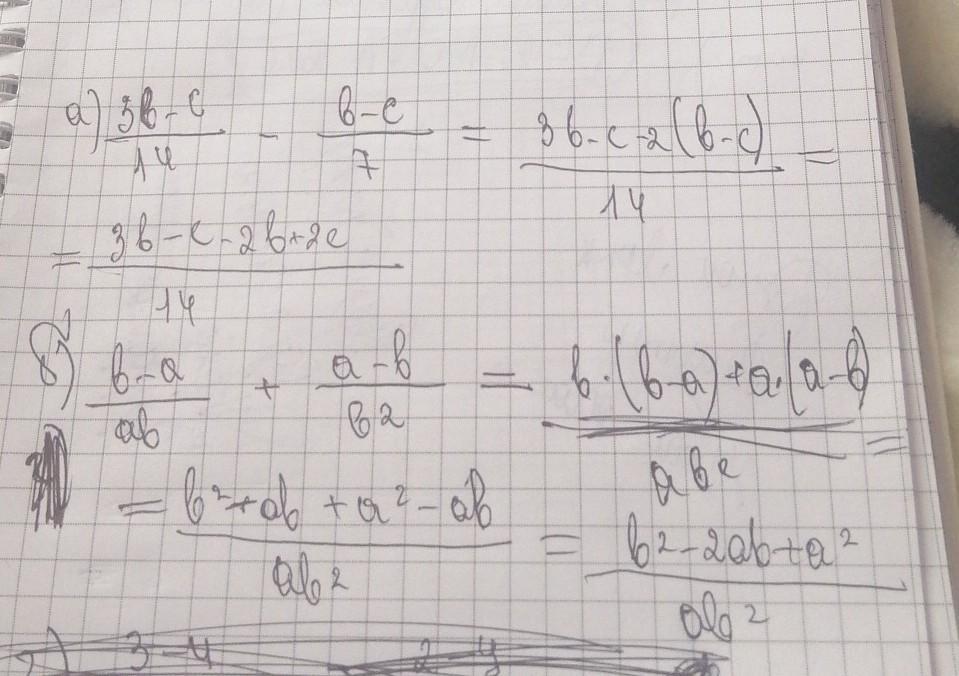 а) (3b-c)/14 - (b-c)/7 = (3b-c-2(b-c))/14 =
= (3b-c-2b+2c)/14
б) (b-a)/ab + (a-b)/b2 = (b·(b-a)+a·(a-b))/ab² =
= (b²+ab+a²-ab)/ab² = (b²-2ab+a²)/ab²
3-4 2-y